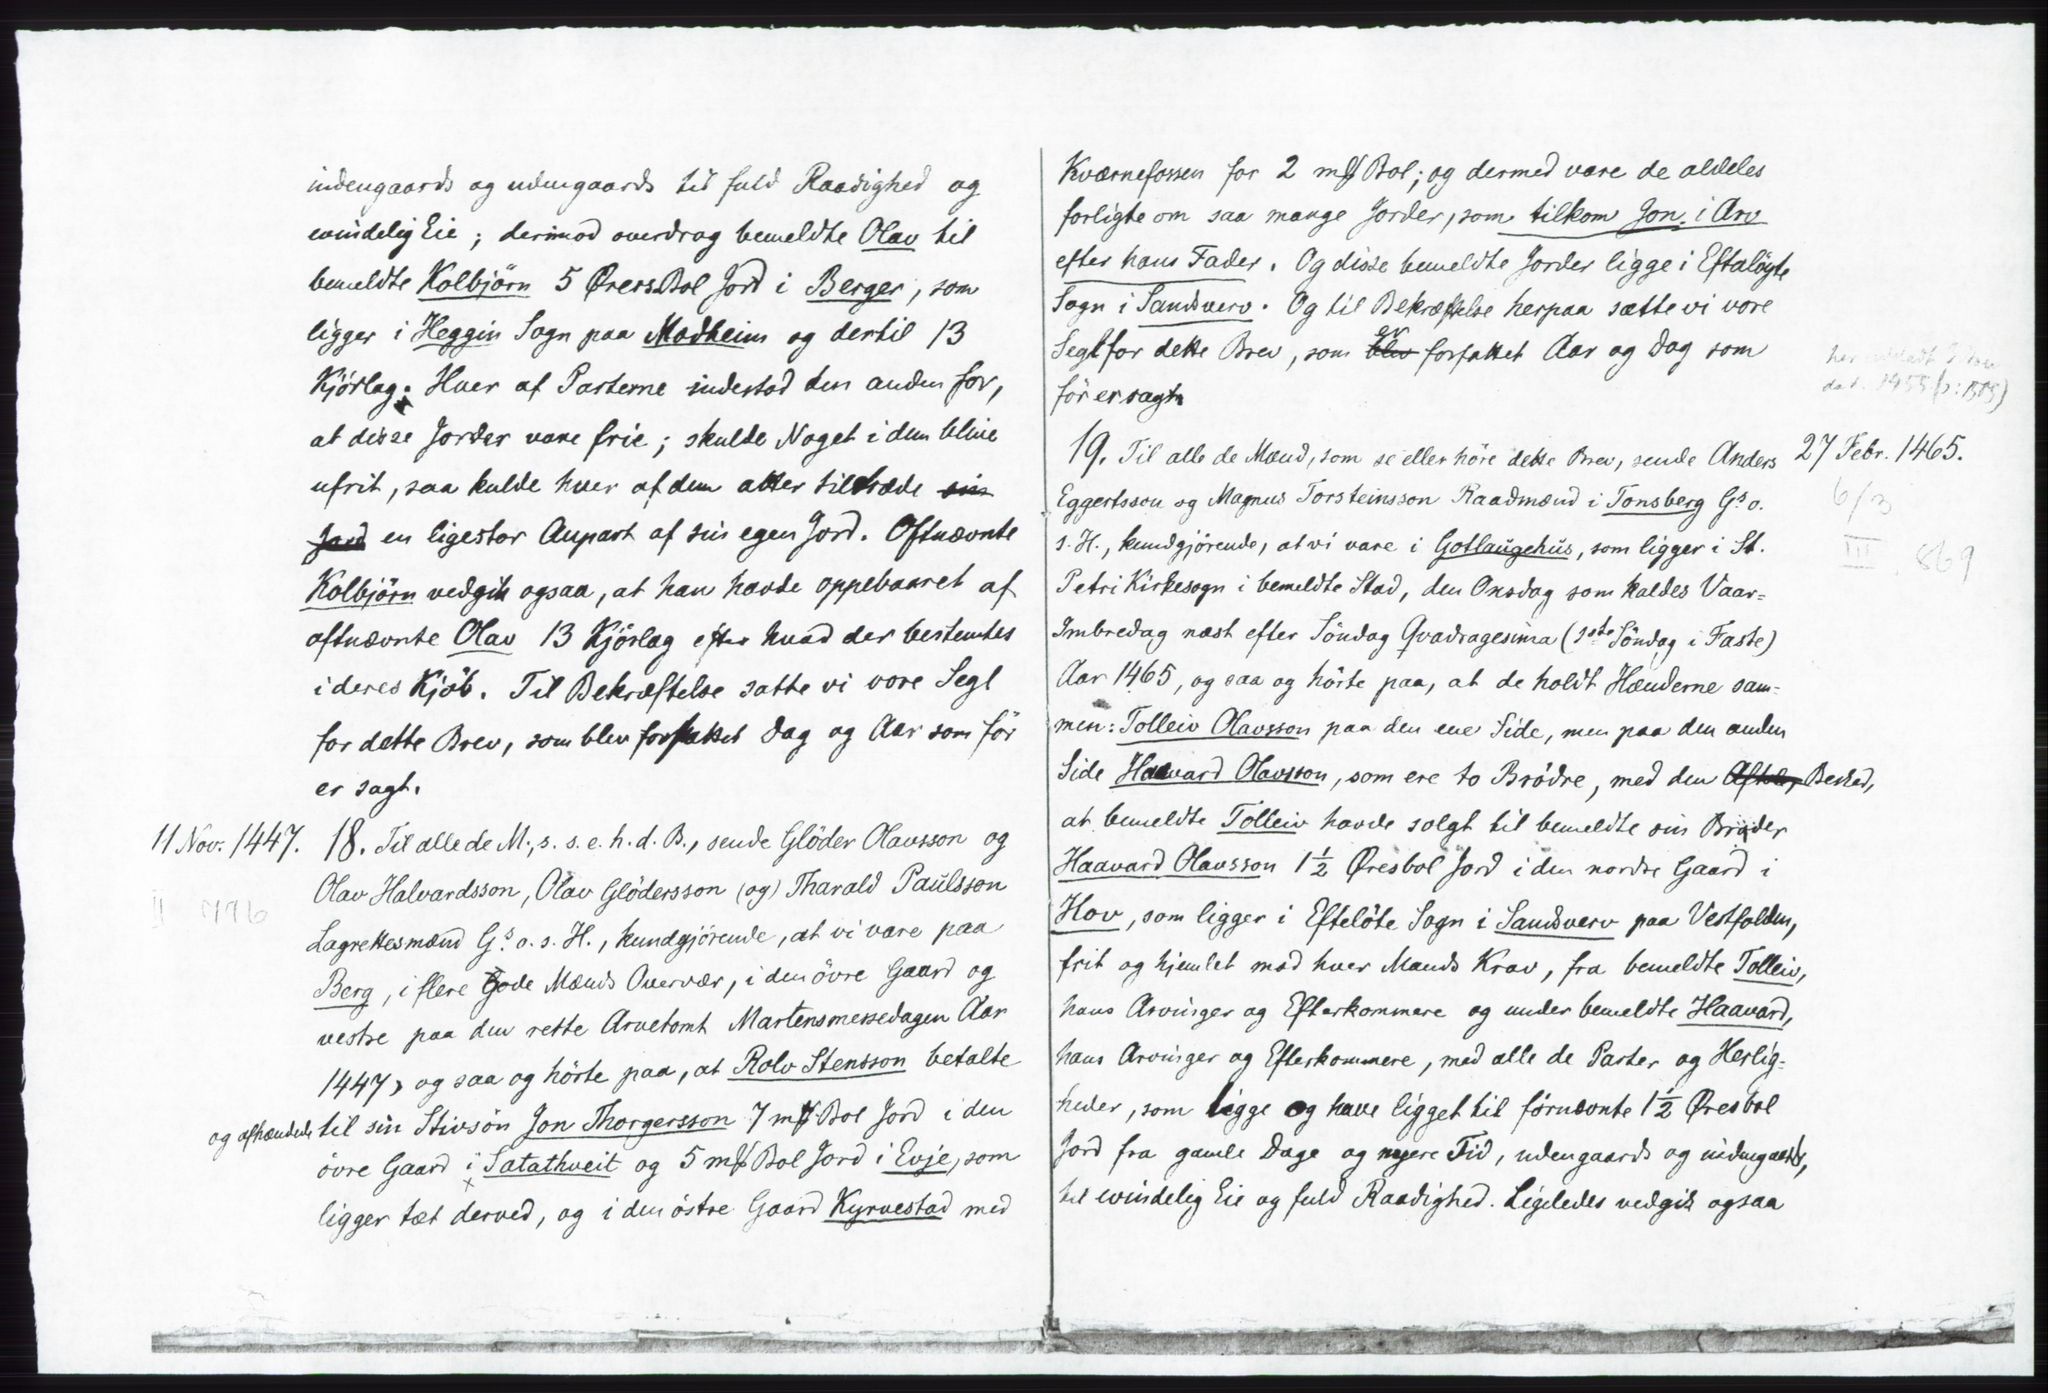 indengaards og udengaards til fuld Raadighed og
evindelig Eie; derimod overdrog bemeldte Olav til
bemeldte Kolbjörn 5 Øresbol Jord i Berger, som
ligger i Heggin Sogn paa Modheim og dertil 13
Kjörlag. Hver af Parterne indestod den anden for,
at disse Jorder vare frie; skulde Noget i dem blive
ufrit, saa kulde hver af dem atter tiltræde sin
Jord en ligestor Anpart af sin egen Jord. Oftnævnte
Kolbjörn vedgik ogsaa, at han havde oppebaaret af
oftnævnte Olav 13 Kjörlag efter hvad der bestemtes
i deres Kjöb. Til Bekræftelse satte vi vore Segl
for dette Brev, som blev forfattet Dag og Aar som för
er sagt.
11 Nov. 1447. 18. Til alle de M., s. s. e. h. d. B., sende Glöder Olavsson og
Olav Halvardsson, Olav Glödersson (og) Tharald Paulsson
II 796
Lagrettesmænd Gs. o. s. H., kundgjörende, at vi vare paa
Berg, i flere Gode Mænds Overvær, i den övre Gaard og
vestre paa den rette Arvetomt Martensmessedagen Aar
1447, og saa og hörte paa, at Rolv Stensson betalte
og afhændede til sin Stivsön Jon Thorgersson 7 mk Bol Jord i den
övre Gaard i Satathveit og 5 mk Bol Jord i Evje, som
ligger tæt derved, og i den östre Gaard Kyrvestad med
Kværnefossen for 2 mk Bol; og dermed vare de aldeles
forligte om saa mange Jorder, som tilkom Jon i Arv
efter hans Fader. Og disse bemeldte Jorder ligge i Eftalöyte
Sogn i Sandsverv. Og til Bekræftelse herpaa sætte vi vore
Segl for dette Brev, som blev er forfattet Aar og Dag som
för er sagt.
19. Til alle de Mænd, som se eller höre dette Brev, sende Anders 27 Febr. 1465.
Eggertsson og Magnus Torsteinsson Raadmænd i Tonsberg Gs. o.
6/3
s. H., kundgjörende, at vi vare i Gotlaugehus, som ligger i St.
III. 869
Petri Kirkesogn i bemeldte Stad, den Onsdag som kaldes Vaar-
Imbredag næst efter Söndag Qvadragesima (1ste Söndag i Faste)
Aar 1465, og saa og hörte paa, at de holdt Hænderne sam-
men: Tolleiv Olavsson paa den ene Side, men paa den anden
Side Haavard Olavsson, som ere to Brödre, med den Beskad,
at bemeldte Tolleiv havde solgt til bemeldte sin Broder
Haavard Olavsson 1½ Øresbol Jord i den nordre Gaard i
Hov, som ligger i Eftelöte Sogn i Sandsverv paa Vestfolden,
frit og hjemlet mod hver Mands Krav, fra bemeldte Tolleiv,
hans Arvinger og Efterkommere og under bemeldte Haavard,
hans Arvinger og Efterkommere, med alle de Parter og Herlig-
heder, som ligge og have ligget til förnævnte 1½ Øresbol
Jord fra gamle Dage og nyere Tid, udengaards og indengaards,
til evindelig Eie og fuld Raadighed. Ligeledes vedgik ogsaa